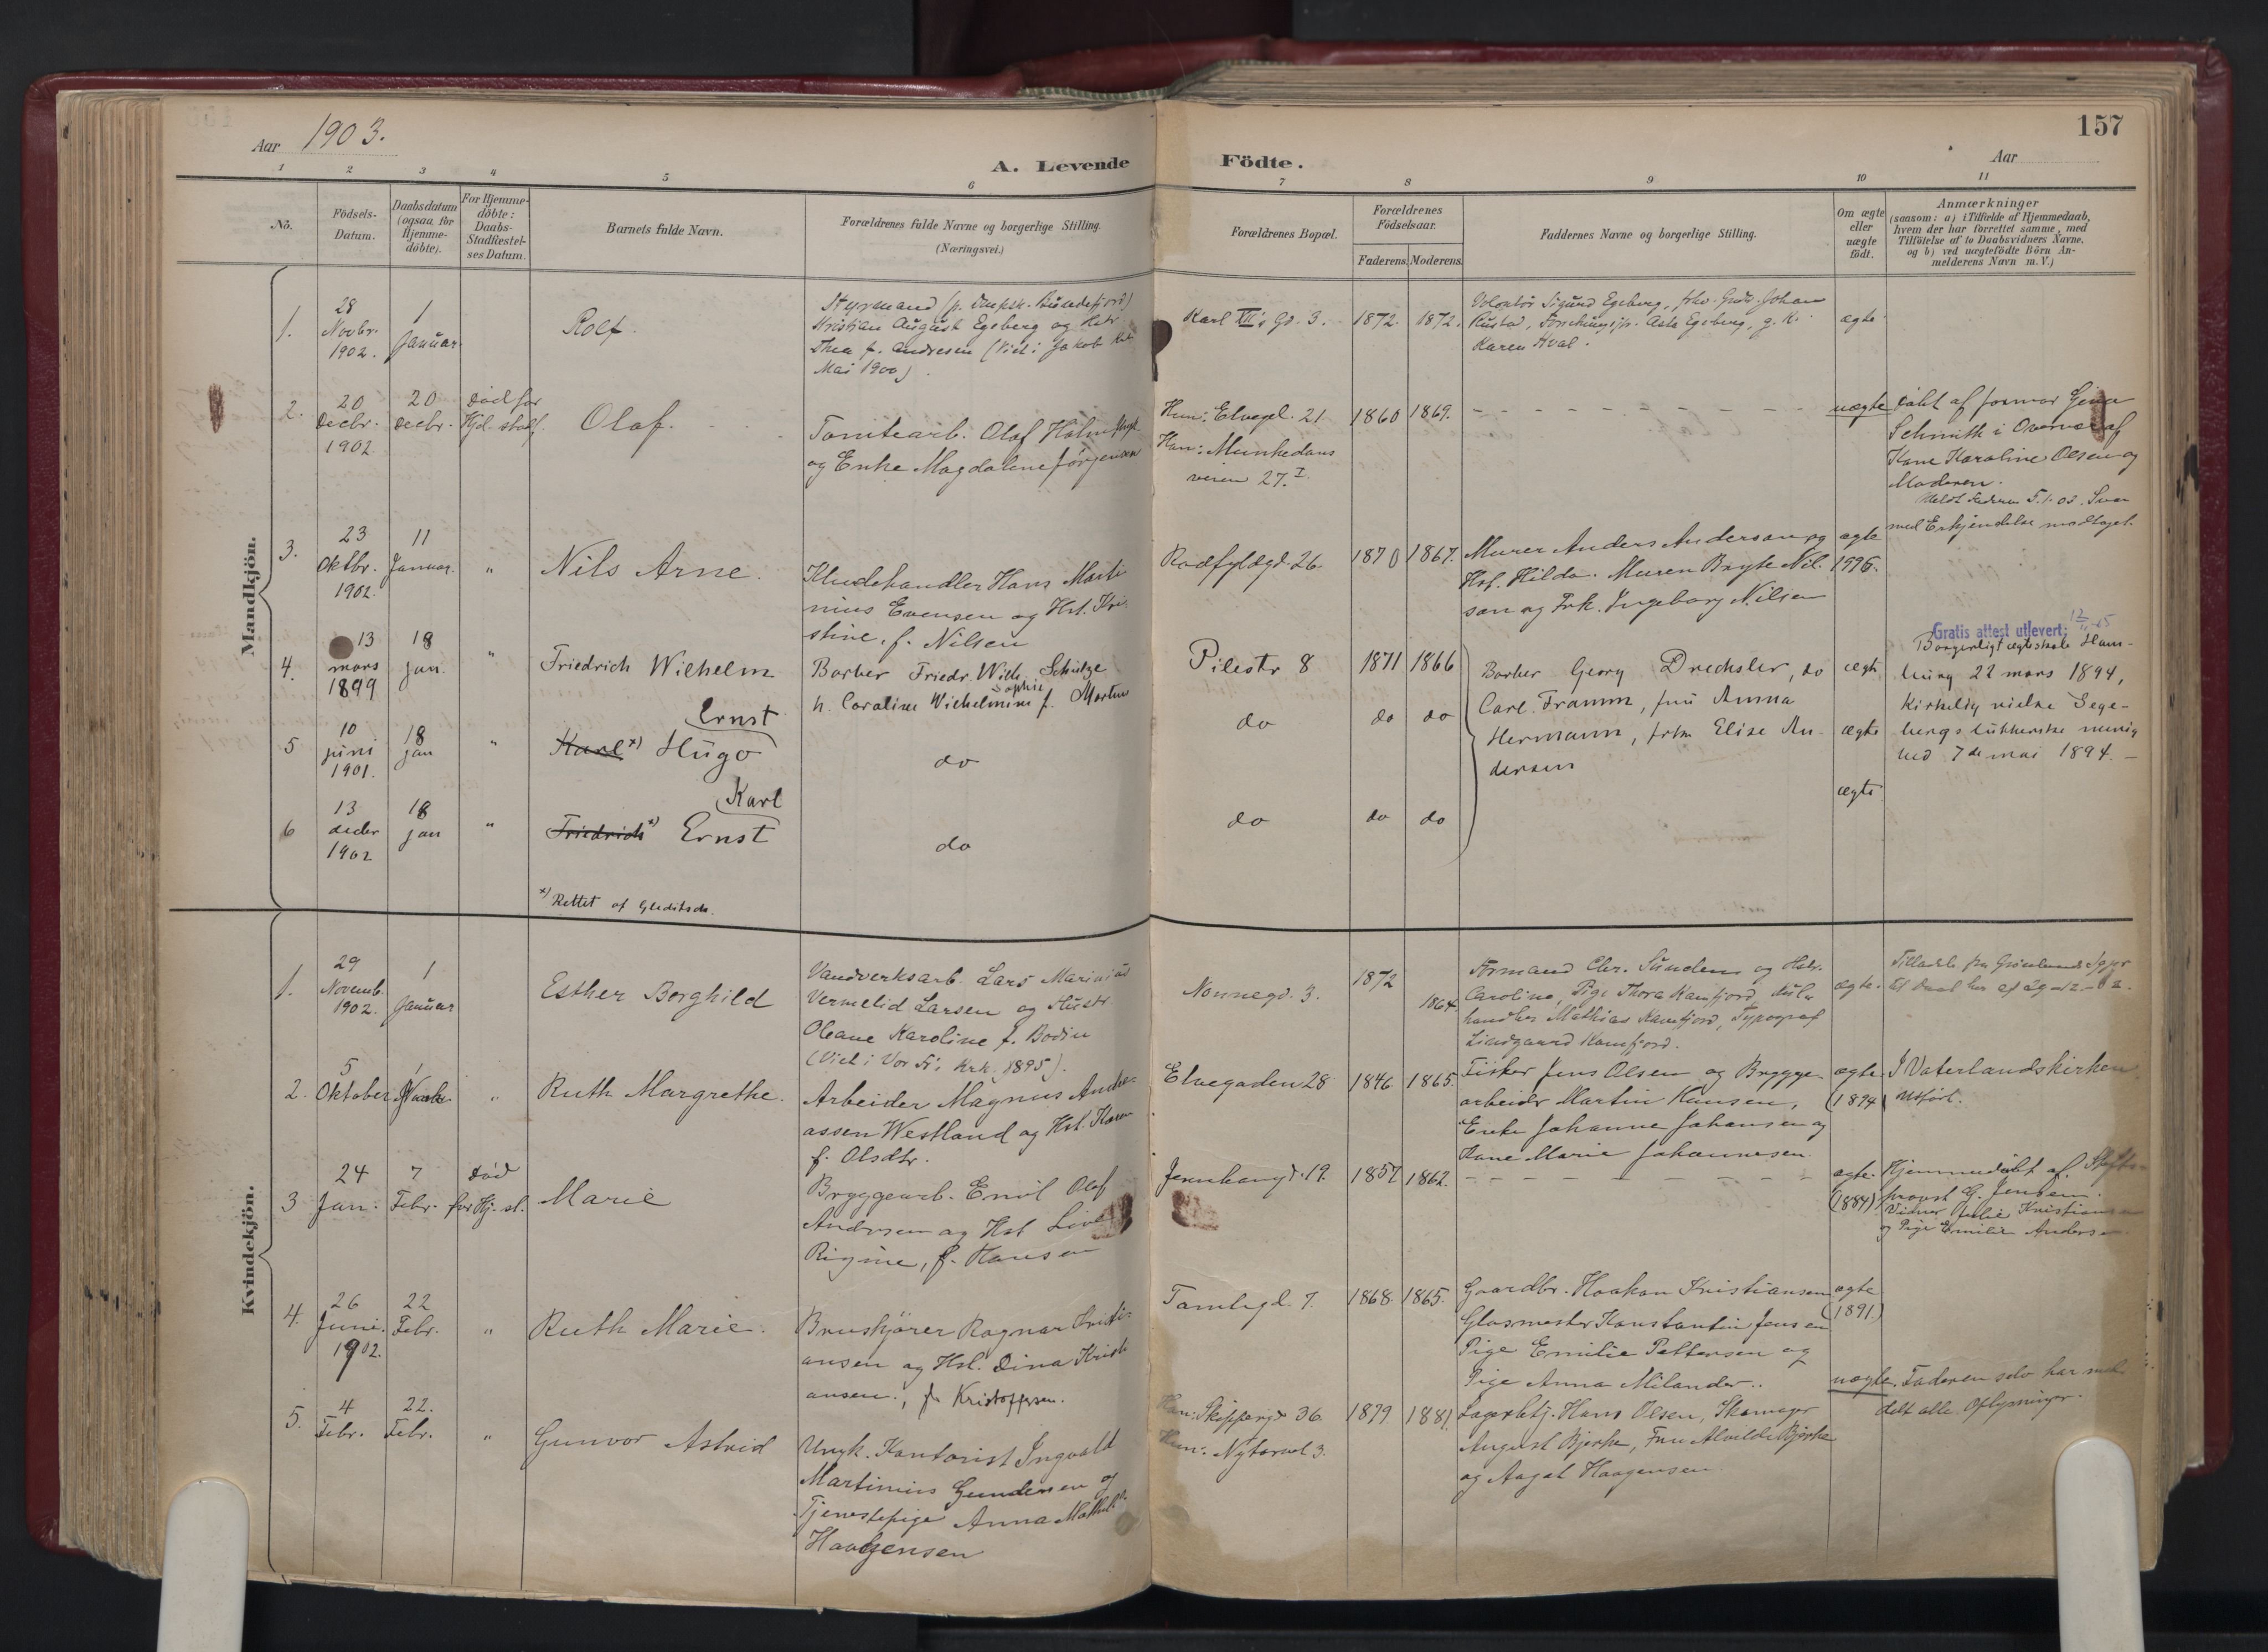 Aar 1903.
A. Levende Födte.
157
Aar
1 2 3 4 5 6 7 8 9 10 11
No.
Födsels-
Datum.
Daabsdatum
(ogsaa for
Hjemme-
döbte).
For Hjemme-
döbte:
Daabs-
Stadfæstel-
ses Datum.
Barnets fulde Navn.
Forældrenes fulde Navne og borgerlige Stilling.
(Næringsvei.)
Forældrenes Bopæl.
Forældrenes
Födselsaar.
Faderens.
Moderens.
Faddernes Navne og borgerlige Stilling.
Om ægte
eller
uægte
födt.
Anmærkninger
(saasom: a) i Tilfælde af Hjemmedaab,
hvem der har forrettet samme, med
Tilföielse af to Daabsvidners Navne,
og b) ved uægtefödte Börn An-
melderens Navn m. V.)
Mandkjön.
1.
28
Novbr.
1902.
1
Januar
Rolf.
Styrmand
Kristian August Egeberg og Hstr.
Thea f. Andresen (Viet i Jakob
Mai 1900).
Karl XII's Gd. 3.
1872. 1872.
Volontör Sigurd Egeberg,
Johan
Rustad, Egeberg,
Karen Hval.
ægte
2.
20
Decbr.
1902
20
Decbr.
Död før
Hjd. stadf.
Olaf.
Tomtearb. Olaf Holm
og Enke Magdalene Jørgensen
Hun: Elvegd. 21
Han: Munkedams
veien 27. I
1860 1869.
uægte
Døbt af Jormor Gina
Schmith i Overvær af
Kone Karoline Olsen og
Moderen.
Meldt Faderen 5.1.03. Svar
med Erkjendelse modtaget.
3.
23
Oktbr.
1902.
11
Januar.
"
Nils Arne.
Kludehandler Hans Marti
nius Evensen og Hst. Kri-
stine, f. Nilsen
Rødfyldgd. 26.
1870 1867.
Murer Anders Anderson og
Hst. Hilda. Murer Bryte Nil-
son og Frk. Ingeborg Nilsen
ægte
1896.
4.
13
mars
1899
18
jan.
"
Friedrich Wilhelm
Barber Friedr. Wilh. Schütze
h. Caroline Wilhelmine Sophie f. Martens
Pilestr 8
1871 1866
Barber Georg Drechsler, do
Carl Framm, fru Anna
Hermann, frkn Elise An-
dersen
ægte
Gratis attest utlevert:
Borgerligt ægteskab Ham-
burg 22 mars 1894,
Kirkelig vielse Sege-
bergs lutherske menig
hed 7de mai 1894. –
5
10
juni
1901.
18
jan
"
Ernst
Karl x) Hugo
do
do
do do
ægte
6
13
decbr
1902
18
jan
"
Karl
Friedrich x) Ernst
do
do
do do
ægte
x) Rettet af Gleditsch.
Kvindekjön.
1.
29
Novemb.
1902.
1
Januar
Esther Borghild
Vandverksarb. Lars Marinius
Vermelid Larsen og Hustr.
Oleane Karoline f. Bodin
(Viet i Vor Fr. Krk. 1895).
Nonnegd. 3.
1872
1864.
Formand Chr. Sunden og Hstr.
Caroline, Pige Thora Kamfjord,
Mathias Kamfjord, Typograf
Lindgaard Kamfjord.
ægte.
Tilladels fra Grønlands
2.
5
Oktober
1
"
Ruth Margrethe.
Arbeider Magnus Andre-
assen Westland og Hst. Karen
f. Olsdtr.
Elvegaden 28
1846 1865.
Fisker Jens Olsen og Brygge
arbeider Martin Hansen,
Enke Johanne Johansen og
Kone Marie Johannesen
ægte
(1894)
I Vaterlandskirken
utført.
3
24
Jan.
7
Febr.
Død
før Hj. st.
Marie
Bryggearb. Emil Olaf
Andersen og Hst.
Rigine, f. Hansen
Jernbanegd. 19.
1857 1862.
ægte.
(1884)
Hjemmedøbt af Stifts-
provst G. Jensen.
Vidner Julie Kristiansen
og Pige Emilie Andersen
4.
26
Juni.
1902.
22
Febr.
"
Ruth Marie.
Bruskjører Ragnar Kristi-
ansen og Hst. Dina Kristi
ansen, f. Kristoffersen.
Tomtegd. 7.
1868. 1865.
Gaardbr. Haakon Kristiansen
Glasmester Konstantin Jensen
Pige Emilie Pettersen og
Pige Anna Milander.
ægte
(1891.)
5.
4
Febr.
22.
Febr.
"
Gunvor Astrid
Ungk. Kontorist Ingvald
Martinius Gundersen og
Tjenestepige Anna Mathilde
Haagensen
Han: Skippergd 36
Hun: Nytorvet 3.
1879 1881.
Lagerbetj. Hans Olsen, Skomager
August Bjerke, Fru Alvilde Bjerke
og Aagot Haagensen
uægte.
Faderen selv har med-
delt alle Oplysninger.